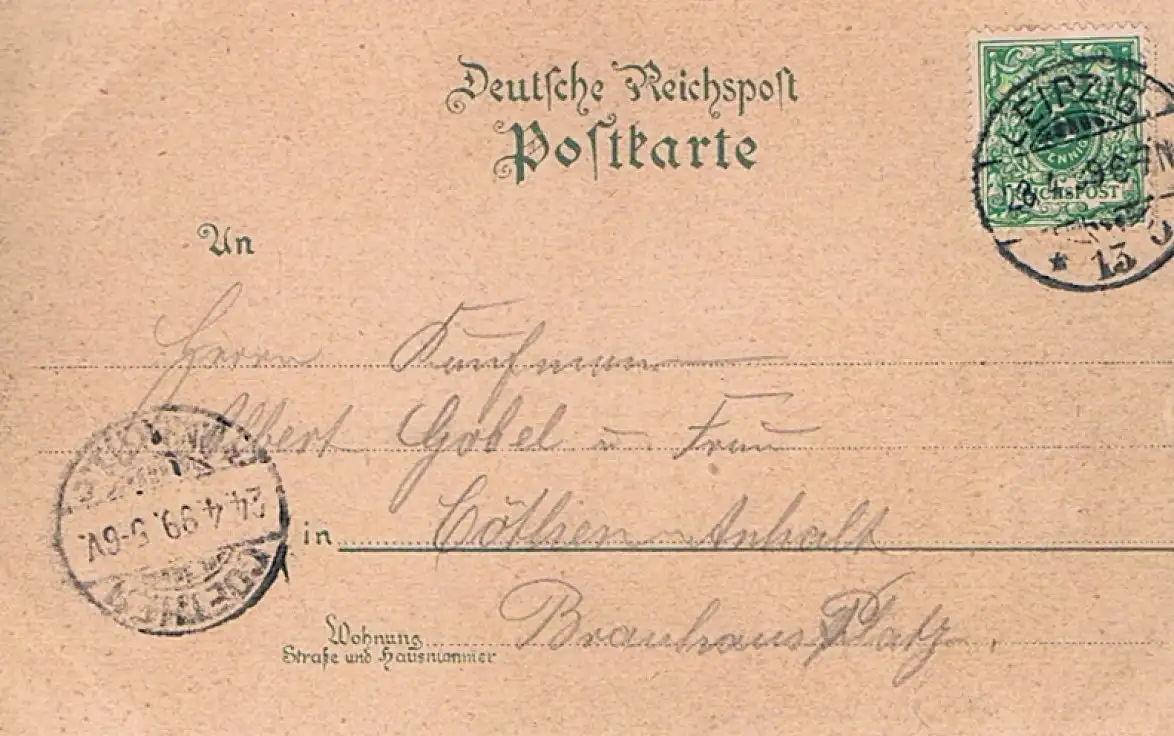 Deutsche Reichspost
Postkarte
LEIPZIG
PFENNIG
REICHSPOST
* 13
An
Herrn Kaufmann
Albert Göbel u Frau
24.4.99. 5-6V.
in Cöthen-Anhalt
COETHEN
Wohnung Brauhaus Platz.
Straße und Hausnummer